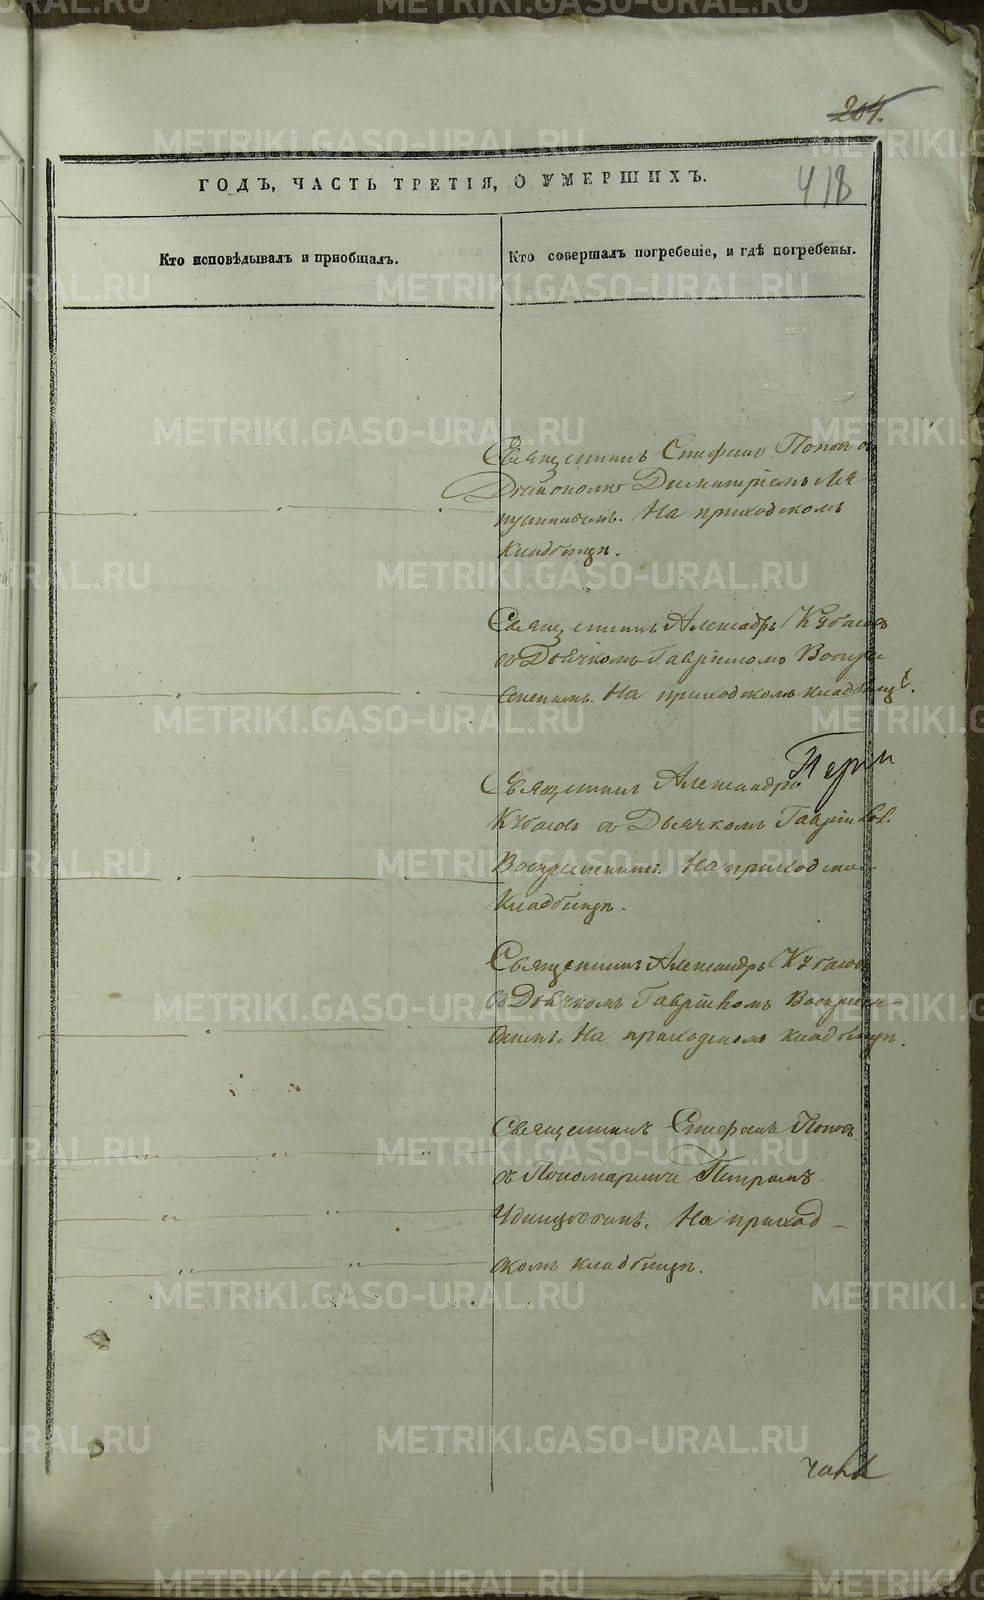 204.
418
ГОДЪ, ЧАСТЬ ТРЕТІЯ, О УМЕРШИХЪ.
Кто исповѣдывалъ и пріобщалъ.
Кто совершалъ погребеніе, и гдѣ погребены.
Священникъ Стефанъ Поповъ съ
Димитріемъ Ля
На приходскомъ
кладбищѣ.
Священникъ Александръ Кубасовъ
съ Дьячкомъ Гавріиломъ Воскре
сенскимъ. На приходскомъ кладбищѣ.
Перм
Священникъ Александръ
Кубасовъ съ Дьячкомъ Гавріиломъ
Воскресенскимъ. На приходскомъ
кладбищѣ.
Священникъ Александръ Кубасовъ
съ Дьячкомъ Гавріиломъ Воскресен-
скимъ. На приходскомъ кладбищѣ.
Священникъ Стефанъ Поповъ
съ Пономаремъ Петромъ
Удинцовымъ. На приход-
скомъ кладбищѣ.
METRIKI.GASO-URAL.RU